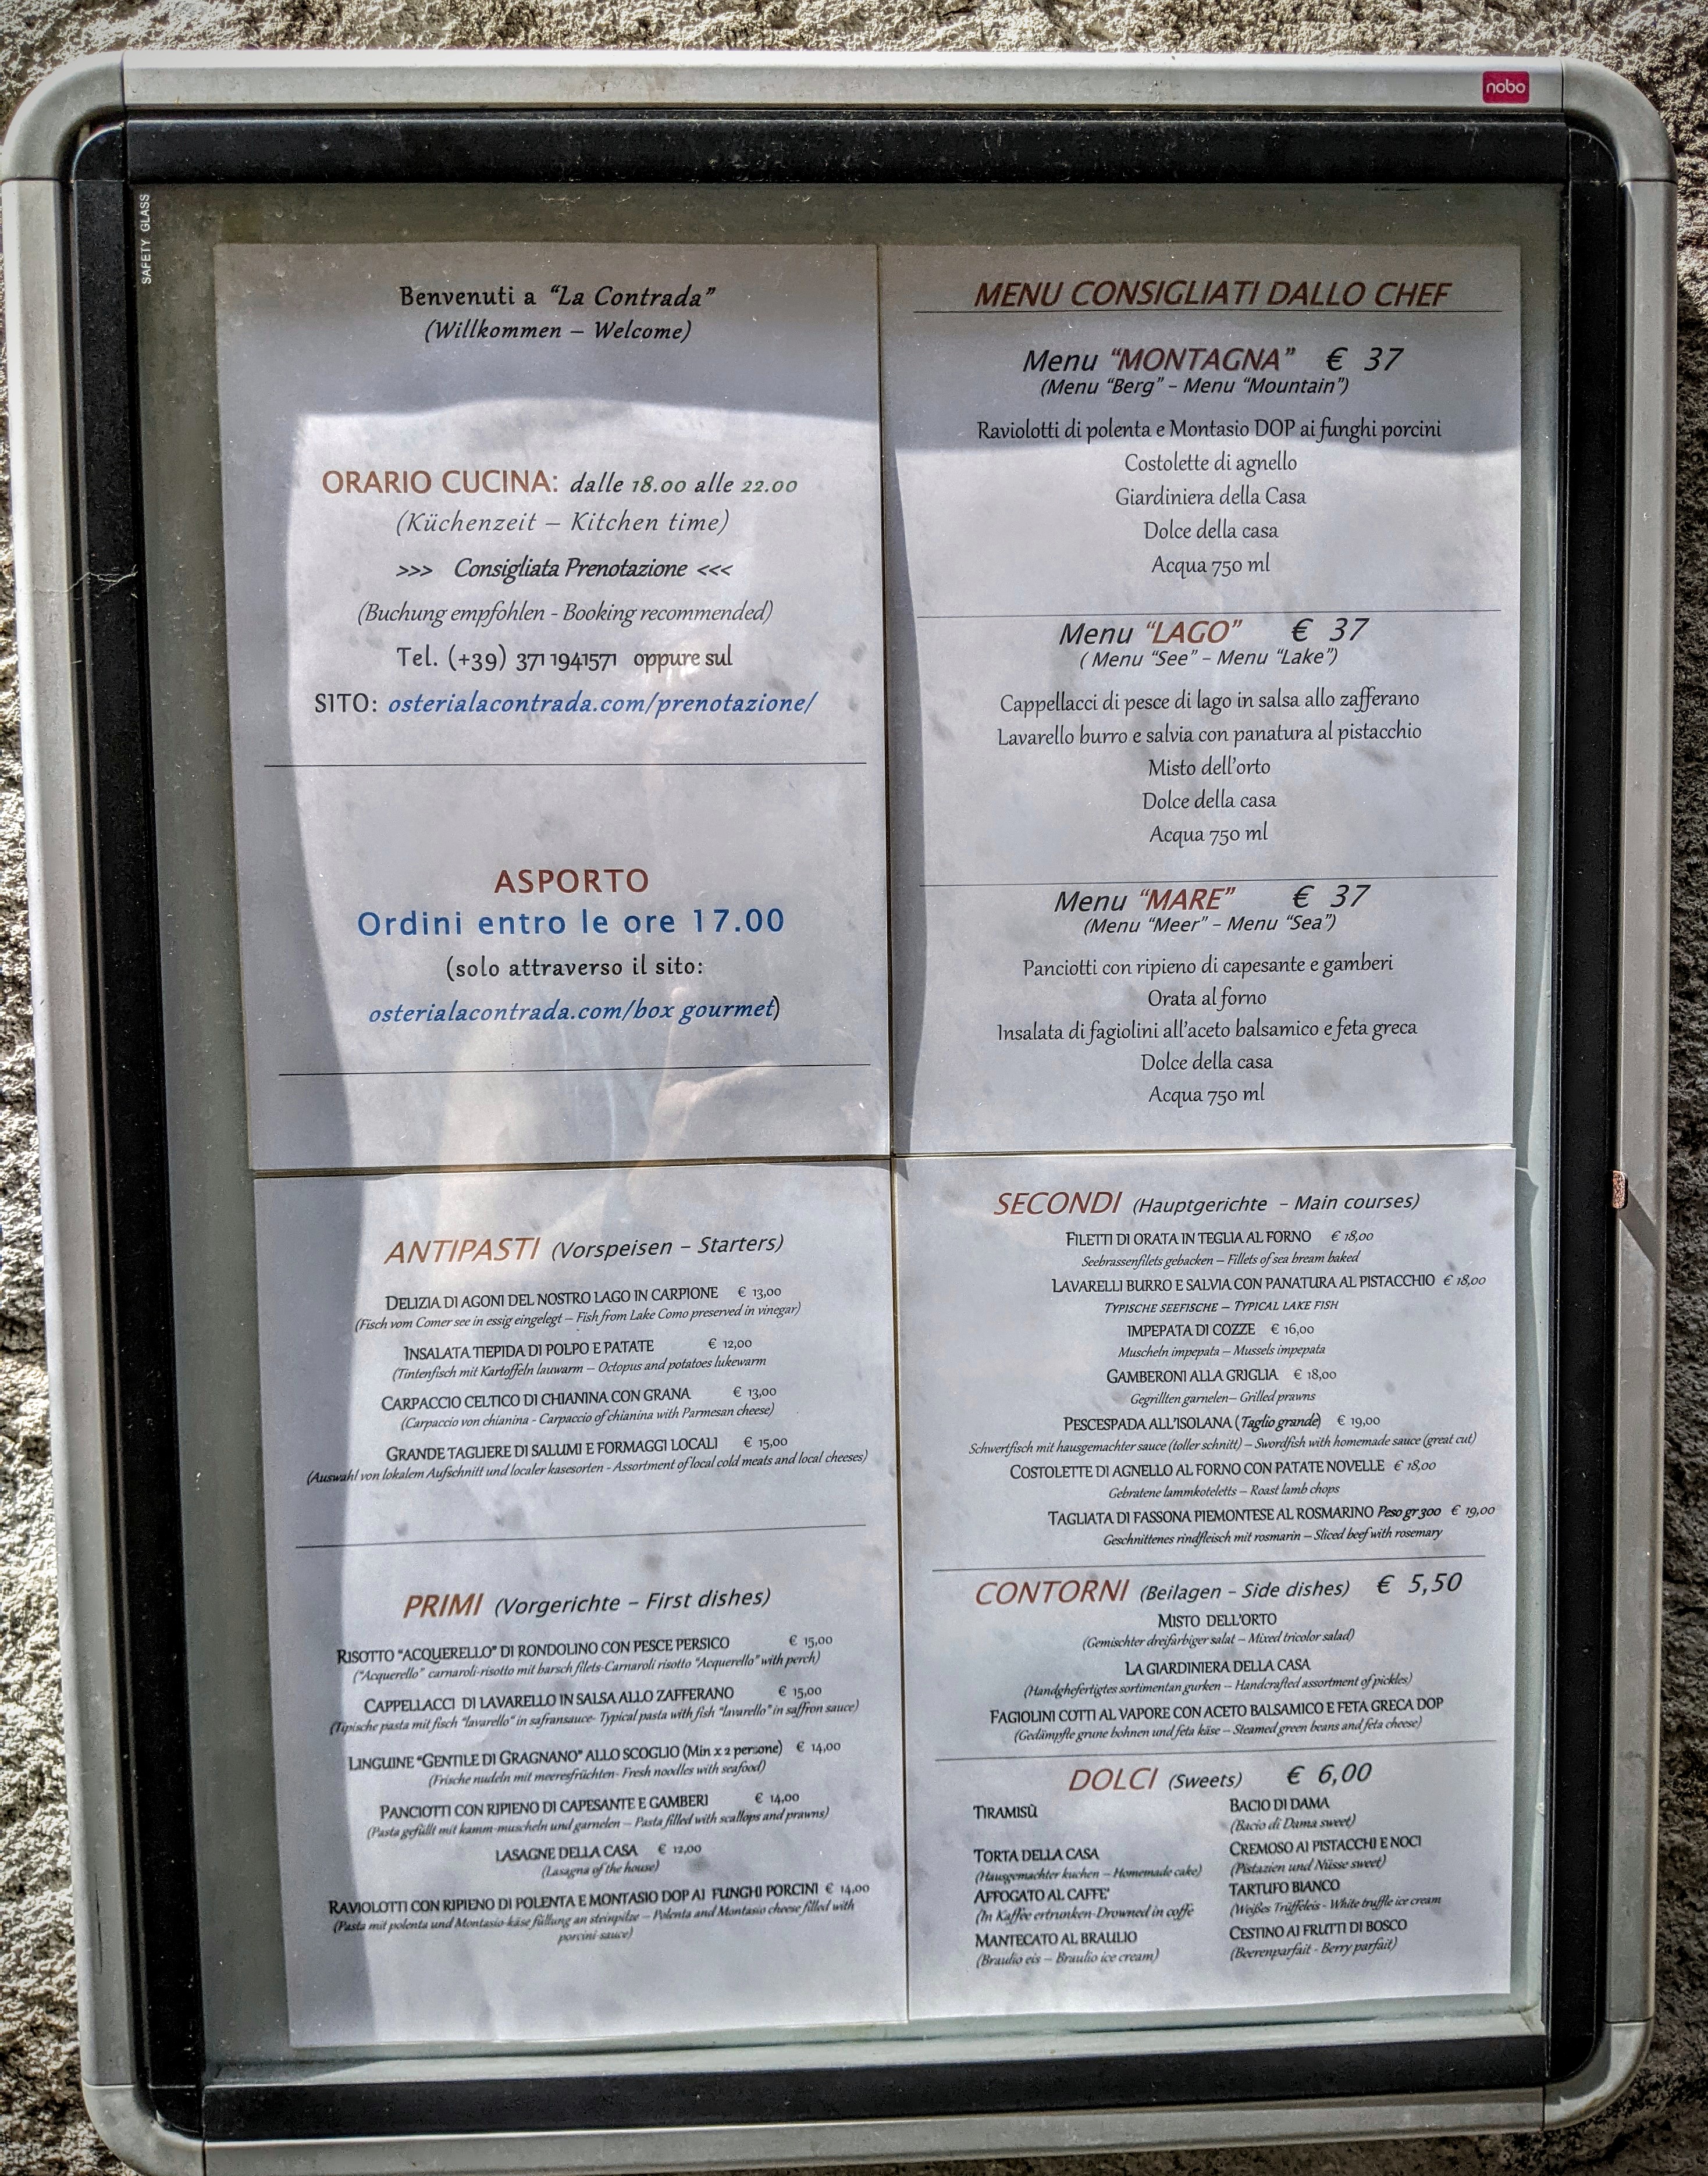 nobo
SAFETY GLASS
Benvenuti a "La Contrada"
(Willkommen – Welcome)
ORARIO CUCINA: dalle 18.00 alle 22.00
(Küchenzeit – Kitchen time)
>>> Consigliata Prenotazione <<<
(Buchung empfohlen - Booking recommended)
Tel. (+39) 371 1941571 oppure sul
SITO: osterialacontrada.com/prenotazione/
ASPORTO
Ordini entro le ore 17.00
(solo attraverso il sito:
osterialacontrada.com/box gourmet)
MENU CONSIGLIATI DALLO CHEF
Menu "MONTAGNA" € 37
(Menu "Berg" – Menu "Mountain")
Raviolotti di polenta e Montasio DOP ai funghi porcini
Costolette di agnello
Giardiniera della Casa
Dolce della casa
Acqua 750 ml
Menu "LAGO" € 37
( Menu "See" – Menu "Lake")
Cappellacci di pesce di lago in salsa allo zafferano
Lavarello burro e salvia con panatura al pistacchio
Misto dell'orto
Dolce della casa
Acqua 750 ml
Menu "MARE" € 37
(Menu "Meer" – Menu "Sea")
Panciotti con ripieno di capesante e gamberi
Orata al forno
Insalata di fagiolini all'aceto balsamico e feta greca
Dolce della casa
Acqua 750 ml
ANTIPASTI (Vorspeisen – Starters)
DELIZIA DI AGONI DEL NOSTRO LAGO IN CARPIONE € 13,00
(Fisch vom Comer see in essig eingelegt – Fish from Lake Como preserved in vinegar)
INSALATA TIEPIDA DI POLPO E PATATE € 12,00
(Tintenfisch mit Kartoffeln lauwarm – Octopus and potatoes lukewarm
CARPACCIO CELTICO DI CHIANINA CON GRANA € 13,00
(Carpaccio von chianina - Carpaccio of chianina with Parmesan cheese)
GRANDE TAGLIERE DI SALUMI E FORMAGGI LOCALI € 15,00
(Auswahl von lokalem Aufschnitt und localer kasesorten - Assortment of local cold meats and local cheeses)
PRIMI (Vorgerichte – First dishes)
RISOTTO "ACQUERELLO" DI RONDOLINO CON PESCE PERSICO € 15,00
("Acquerello" carnaroli-risotto mit barsch filets-Carnaroli risotto "Acquerello" with perch)
CAPPELLACCI DI LAVARELLO IN SALSA ALLO ZAFFERANO € 15,00
(Tipische pasta mit fisch "lavarello" in safransauce- Typical pasta with fish "lavarello" in saffron sauce)
LINGUINE "GENTILE DI GRAGNANO" ALLO SCOGLIO (Min x 2 persone) € 14,00
(Frische nudeln mit meeresfrüchten- Fresh noodles with seafood)
PANCIOTTI CON RIPIENO DI CAPESANTE E GAMBERI € 14,00
(Pasta gefüllt mit kamm-muscheln und garnelen – Pasta filled with scallops and prawns)
LASAGNE DELLA CASA € 12,00
(Lasagna of the house)
RAVIOLOTTI CON RIPIENO DI POLENTA E MONTASIO DOP AI FUNGHI PORCINI € 14,00
(Pasta mit polenta und Montasio-käse füllung an steinpilze – Polenta and Montasio cheese filled with
porcini-sauce)
SECONDI (Hauptgerichte – Main courses)
FILETTI DI ORATA IN TEGLIA AL FORNO € 18,00
Seebrassenfilets gebacken – Fillets of sea bream baked
LAVARELLI BURRO E SALVIA CON PANATURA AL PISTACCHIO € 18,00
TYPISCHE SEEFISCHE – TYPICAL LAKE FISH
IMPEPATA DI COZZE € 16,00
Muscheln impepata – Mussels impepata
GAMBERONI ALLA GRIGLIA € 18,00
Gegrillten garnelen– Grilled prawns
PESCESPADA ALL'ISOLANA (Taglio grande) € 19,00
Schwertfisch mit hausgemachter sauce (toller schnitt) – Swordfish with homemade sauce (great cut)
COSTOLETTE DI AGNELLO AL FORNO CON PATATE NOVELLE € 18,00
Gebratene lammkoteletts – Roast lamb chops
TAGLIATA DI FASSONA PIEMONTESE AL ROSMARINO Peso gr 300 € 19,00
Geschnittenes rindfleisch mit rosmarin – Sliced beef with rosemary
CONTORNI (Beilagen – Side dishes) € 5,50
MISTO DELL'ORTO
(Gemischter dreifarbiger salat – Mixed tricolor salad)
LA GIARDINIERA DELLA CASA
(Handghefertigtes sortimentan gurken – Handcrafted assortment of pickles)
FAGIOLINI COTTI AL VAPORE CON ACETO BALSAMICO E FETA GRECA DOP
(Gedämpfte grune bohnen und feta käse – Steamed green beans and feta cheese)
DOLCI (Sweets) € 6,00
TIRAMISÙ
TORTA DELLA CASA
(Hausgemachter kuchen – Homemade cake)
AFFOGATO AL CAFFE'
(In Kaffee ertrunken-Drowned in coffe
MANTECATO AL BRAULIO
(Braulio eis – Braulio ice cream)
BACIO DI DAMA
(Bacio di Dama sweet)
CREMOSO AI PISTACCHI E NOCI
(Pistazien und Nüsse sweet)
TARTUFO BIANCO
(Weißes Trüffeleis - White truffle ice cream
CESTINO AI FRUTTI DI BOSCO
(Beerenparfait - Berry parfait)